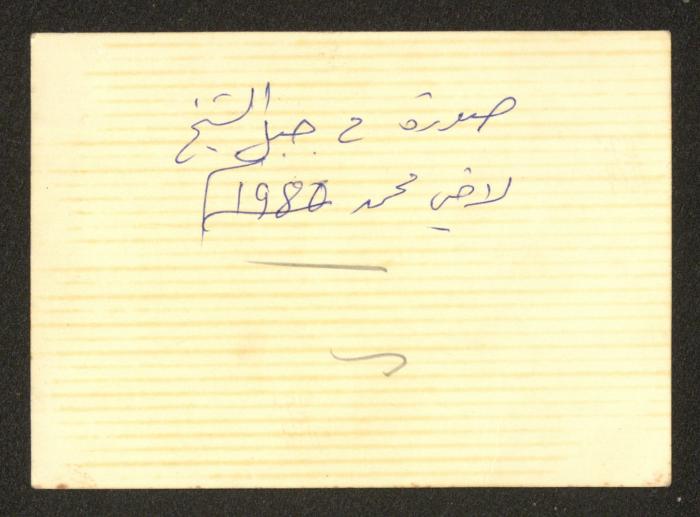 صورة في جبل الشيخ
لاخي محمد 1980